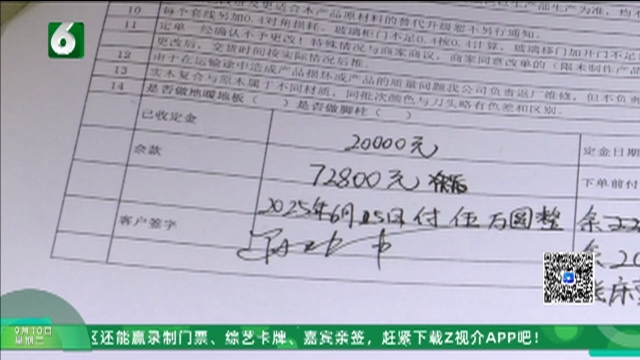 6
10 每个套线另加0.4对角损耗,玻璃柜门不足0.4按0.4计算,玻璃移门加开门不足
11 定单一经确认不予更改!特殊情况与商家商议,商家同意改单的(限未制作产
更改后,交货时间按实际情况后推。
12 由于在运输途中造成产品损坏或产品的质量问题我公司负责返厂维修,但不负
13 实木复合与原木属于不同材质,同批次颜色与刀头略有色差和区别。
14 是否做地暖地板( )是否做脚柱( )
已收定金 20000元 定金日期
余款 72800元 下单前付
2025年6月15日付伍万圆整
客户签字
9月10日
星期三
区还能赢录制门票、综艺卡牌、嘉宾亲签,赶紧下载Z视介APP吧!